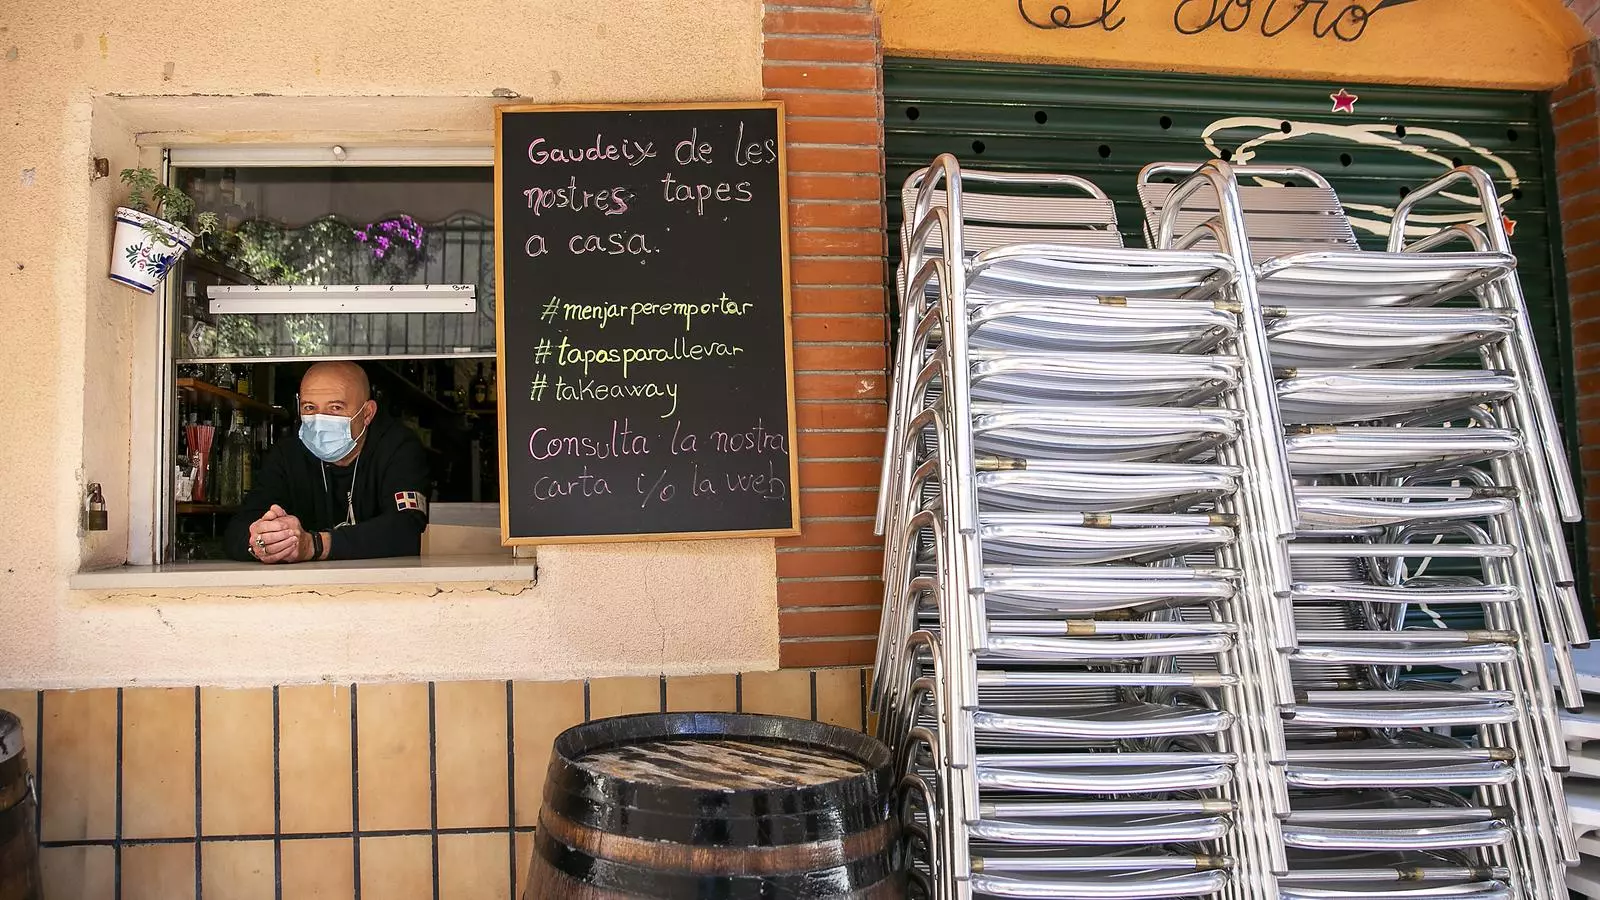 el Sorró
Gaudeix de les
nostres tapes
a casa.
#menjarperemportar
#tapasparallevar
#takeaway
Consulta la nostra
carta i/o la web
1 2 3 4 5 6 7